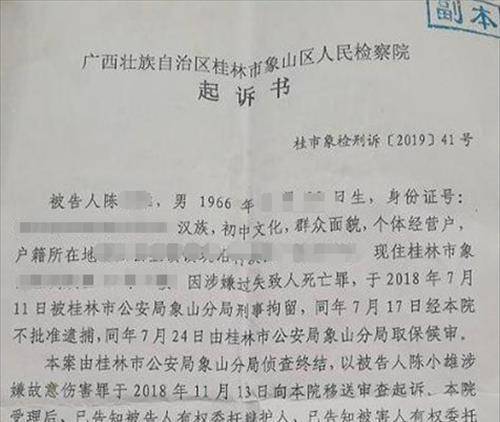 副本
广西壮族自治区桂林市象山区人民检察院
起诉书
桂市象检刑诉〔2019〕41号
被告人陈 男 1966 年 日生，身份证号：
汉族，初中文化，群众面貌，个体经营户，
户籍所在地 现住桂林市象
因涉嫌过失致人死亡罪，于2018年7月
11日被桂林市公安局象山分局刑事拘留，同年7月17日经本院
不批准逮捕，同年7月24日由桂林市公安局象山分局取保候审。
本案由桂林市公安局象山分局侦查终结，以被告人陈小雄涉
嫌故意伤害罪于2018年11月13日向本院移送审查起诉。本院
受理后，已告知被告人有权委托辩护人，已告知被害人有权委托